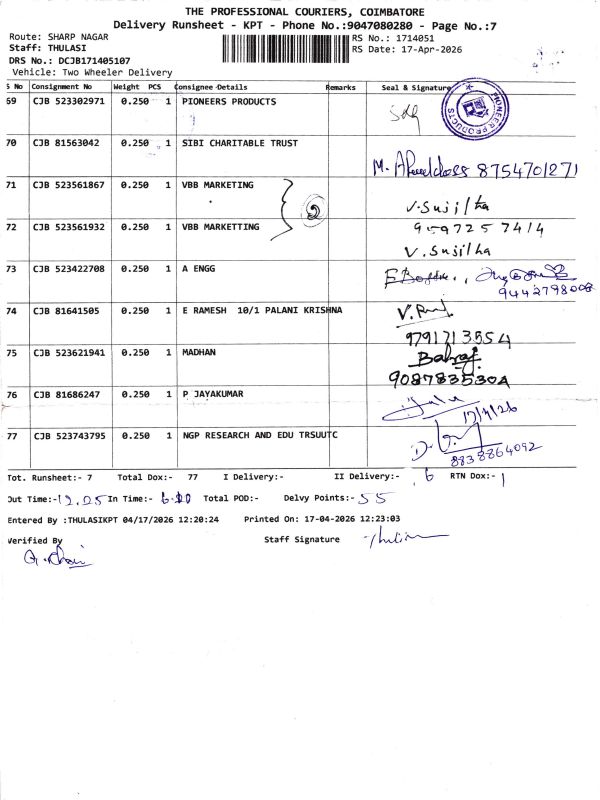 THE PROFESSIONAL COURIERS, COIMBATORE
Delivery Runsheet - KPT - Phone No.:9047080280 - Page No.:7
Route: SHARP NAGAR
Staff: THULASI
DRS No.: DCJB171405107
Vehicle: Two Wheeler Delivery
RS No.: 1714051
RS Date: 17-Apr-2026
S No Consignment No Weight PCS Consignee Details Remarks Seal & Signature
69 CJB 523302971 0.250 1 PIONEERS PRODUCTS
PIONEER PRODUCTS
70 CJB 81563042 0.250 1 SIBI CHARITABLE TRUST
8754701271
71 CJB 523561867 0.250 1 VBB MARKETTING
V.Sujitha
72 CJB 523561932 0.250 1 VBB MARKETTING
9597257414
V.Sujitha
73 CJB 523422708 0.250 1 A ENGG
9442798008
74 CJB 81641505 0.250 1 E RAMESH 10/1 PALANI KRISHNA
9791713554
75 CJB 523621941 0.250 1 MADHAN
Balraj
9087835304
76 CJB 81686247 0.250 1 P JAYAKUMAR
17/4/26
77 CJB 523743795 0.250 1 NGP RESEARCH AND EDU TRSUUTC
8838864092
Tot. Runsheet:- 7 Total Dox:- 77 I Delivery:- II Delivery:- 6 RTN Dox:- 1
Out Time:- 12.25 In Time:- Total POD:- Delvy Points:- 55
Entered By :THULASIKPT 04/17/2026 12:20:24 Printed On: 17-04-2026 12:23:03
Verified By Staff Signature